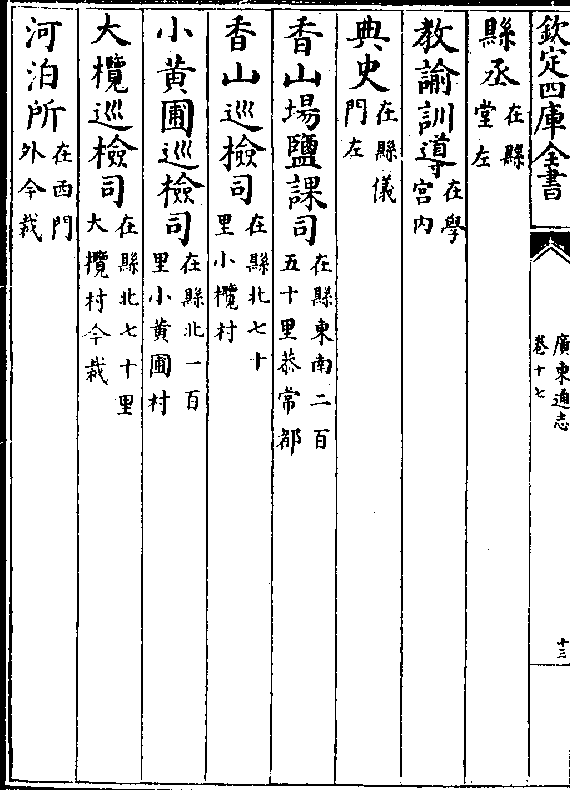 欽定四庫全書
廣東通志
卷十七
十三
縣丞在縣堂左
教諭訓導在學宮內
典史在縣儀門左
香山場鹽課司在縣東南二百五十里恭常都
香山巡檢司在縣北七十里小欖村
小黃圃巡檢司在縣北一百里小黃圃村
大欖巡檢司在縣北七十里大欖村今裁
河泊所在西門外今裁